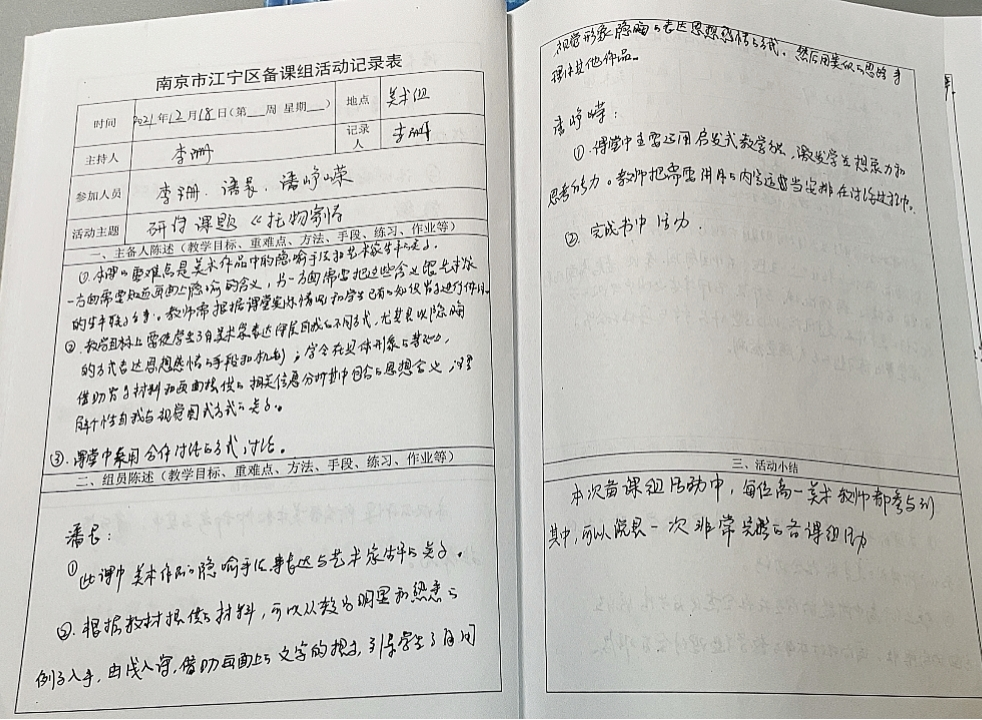 南京市江宁区备课组活动记录表
时间 2021年12月18日(第 周 星期 ) 地点 美术组
主持人 李珊 记录人 李珊
参加人员 李珊、潘晨、潘峥嵘
活动主题 研讨课题《托物寄情
一、主备人陈述(教学目标、重难点、方法、手段、练习、作业等)
①本课的重难点是美术作品中的隐喻手法和艺术家生平的关系。
一方面需要知道画面上隐喻的含义,另一方面需要把这些含义跟艺术家
的生平联系。教师需根据课堂实际情况和学生已有的知识
②教学目标上需使学生了解美术家表达情感的不同方式,尤其是以隐晦
的方式表达思想感情的手段和机制;学会在具体形象的基础,
借助文字材料和画面提供的相关信息分析其中包含的思想含义,
解个性自我与视觉图式方式的关系。
③课堂中采用合作讨论的方式,讨论。
二、组员陈述(教学目标、重难点、方法、手段、练习、作业等)
潘晨:
①此课中美术作品的隐喻手法表达与艺术家生平的关系。
②根据教材提供的材料,可以从较为明显和熟悉的
例子入手,由浅入深,借助画面上的文字的提示,引导学生了解用
视觉形象隐晦的表达思想感情的方式。然后用类似的思路去
其他作品。
潘峥嵘:
①课堂中主要运用启发式教学法,激发学生想象力和
思考能力。教师把需要讲解的内容适当安排在讨论过程中。
②完成书中活动.
三、活动小结
本次备课组活动中,每位高一美术教师都参与到
其中,可以说是一次非常完整的备课组活动